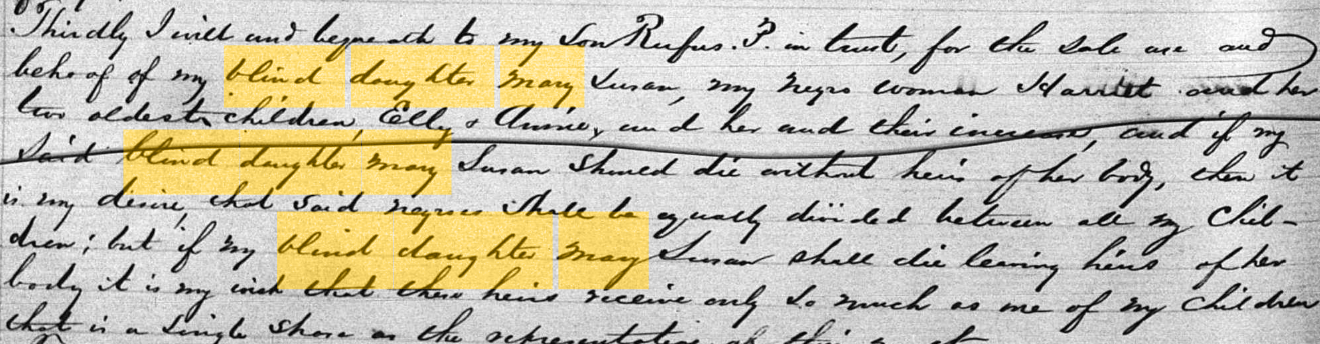 Thirdly I will and bequeath to my Son Rufus. P. in trust, for the sole use and
behoof of my blind daughter Mary Susan, my negro woman Harriet and her
two oldest children, Elly & Annie, and her and their increase, and if my
said blind daughter Mary Susan should die without heirs of her body, then it
is my desire, that said negroes shall be equally divided between all my Chil-
dren; but if my blind daughter Mary Susan shall die leaving heirs of her
body it is my wish that these heirs receive only so much as one of my children
that is a single share as the representative of their